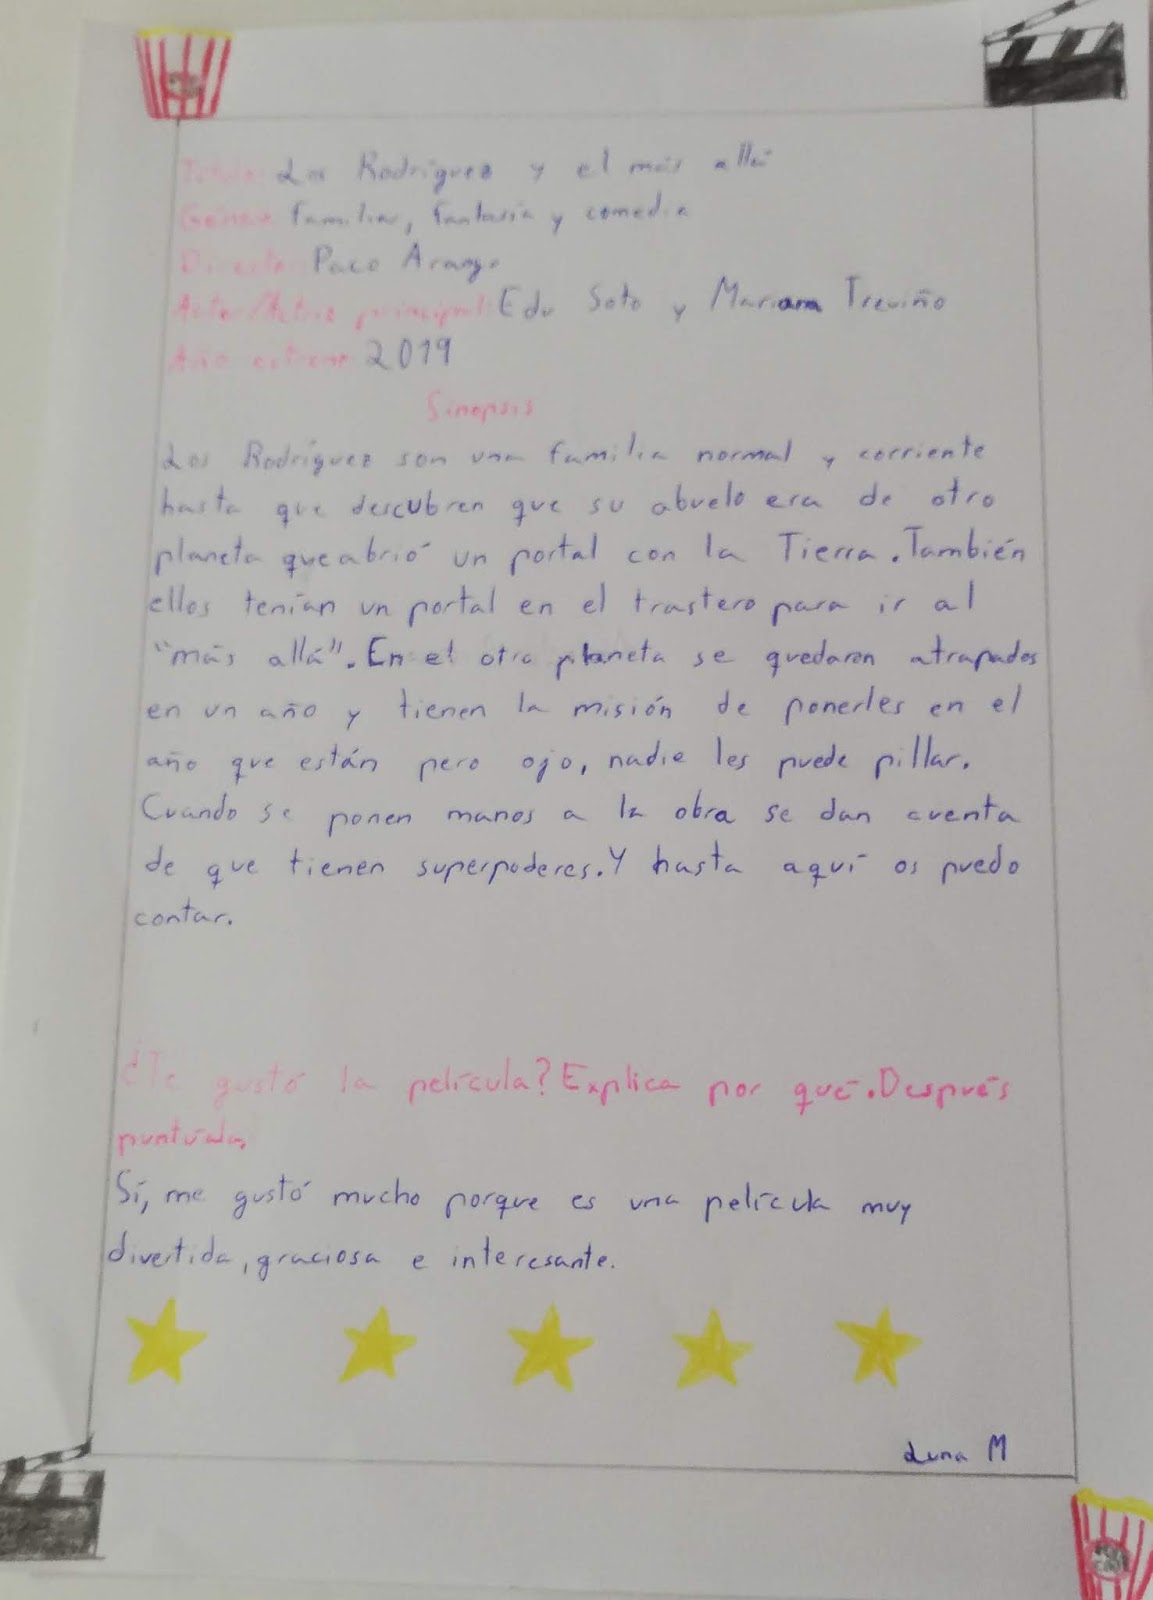 Título: Los Rodríguez y el más allá
Género: Familiar, fantasía y comedia
Director: Paco Arango
Actor/Actriz principal: Edu Soto y Mariana Treviño
Año estreno: 2019
Sinopsis
Los Rodríguez son una familia normal y corriente
hasta que descubren que su abuelo era de otro
planeta que abrió un portal con la Tierra. También
ellos tenían un portal en el trastero para ir al
"más allá". En el otro planeta se quedaron atrapados
en un año y tienen la misión de ponerles en el
año que están pero ojo, nadie les puede pillar.
Cuando se ponen manos a la obra se dan cuenta
de que tienen superpoderes. Y hasta aquí os puedo
contar.
¿Te gustó la película? Explica por qué. Después
puntúala.
Sí, me gustó mucho porque es una película muy
divertida, graciosa e interesante.
Luna M